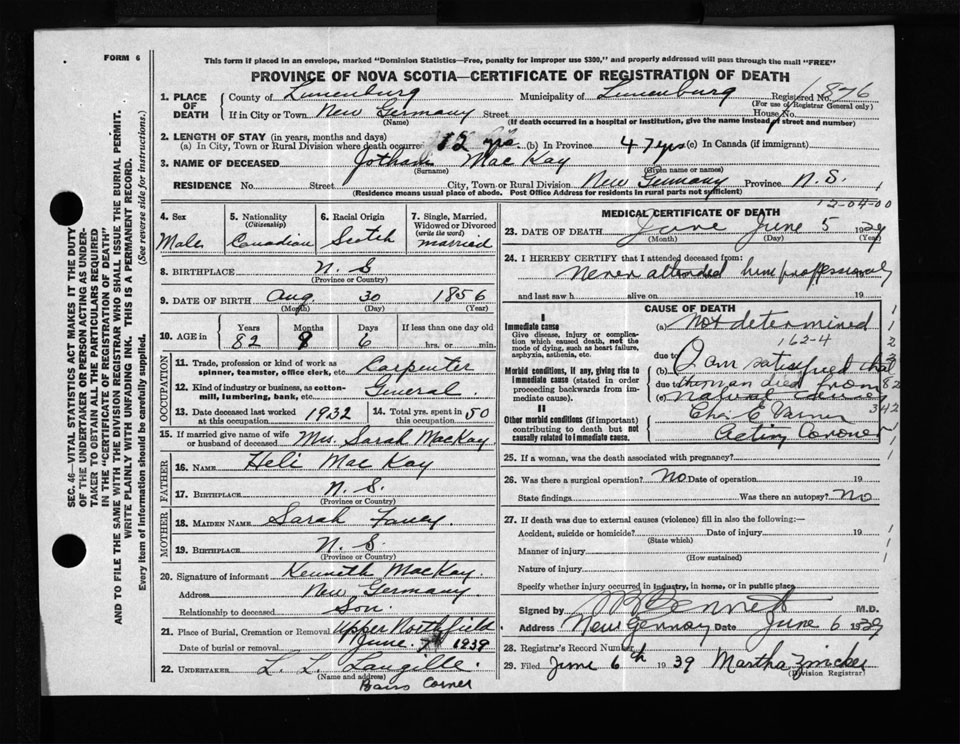 FORM 6
This form if placed in an envelope, marked "Dominion Statistics—Free, penalty for improper use $300," and properly addressed will pass through the mail "FREE"
PROVINCE OF NOVA SCOTIA—CERTIFICATE OF REGISTRATION OF DEATH
SEC. 46—VITAL STATISTICS ACT MAKES IT THE DUTY
OF THE UNDERTAKER OR PERSON ACTING AS UNDER-
TAKER TO OBTAIN ALL THE PARTICULARS REQUIRED
IN THE "CERTIFICATE OF REGISTRATION OF DEATH"
AND TO FILE THE SAME WITH THE DIVISION REGISTRAR WHO SHALL ISSUE THE BURIAL PERMIT.
WRITE PLAINLY WITH UNFADING INK. THIS IS A PERMANENT RECORD.
Every item of information should be carefully supplied. (See reverse side for instructions.)
1. PLACE OF DEATH County of Lunenburg Municipality of Lunenburg Registered No. 1876
(For use of Registrar General only)
If in City or Town New Germany Street House No.
(Name) (If death occurred in a hospital or institution, give the name instead of street and number)
2. LENGTH OF STAY (in years, months and days)
(a) In City, Town or Rural Division where death occurred 12 yrs. (b) In Province 47 yrs (c) In Canada (if immigrant)
3. NAME OF DECEASED Jotham MacKay
(Surname) (Given name or names)
RESIDENCE No. Street City, Town or Rural Division New Germany Province N.S.
(Residence means usual place of abode. Post Office Address for residents in rural parts not sufficient)
4. Sex Male
5. Nationality (Citizenship) Canadian
6. Racial Origin Scotch
7. Single, Married, Widowed or Divorced (write the word) married
8. BIRTHPLACE N.S
(Province or Country)
9. DATE OF BIRTH Aug 30 1856
(Month) (Day) (Year)
10. AGE in Years 82 Months 9 Days 6 If less than one day old hrs. or min.
OCCUPATION
11. Trade, profession or kind of work as spinner, teamster, office clerk, etc. Carpenter
12. Kind of industry or business, as cotton-mill, lumbering, bank, etc. General
13. Date deceased last worked at this occupation 1932 14. Total yrs. spent in this occupation 50
15. If married give name of wife or husband of deceased Mrs. Sarah MacKay
FATHER
16. NAME Heli MacKay
17. BIRTHPLACE N.S.
(Province or Country)
MOTHER
18. MAIDEN NAME Sarah
19. BIRTHPLACE N.S.
(Province or Country)
20. Signature of informant Kenneth MacKay.
Address New Germany
Relationship to deceased Son.
21. Place of Burial, Cremation or Removal Upper Northfield
Date of burial or removal June 7th 1939
22. UNDERTAKER L. L. Langille.
(Name and address)
Corner
12-04-00
MEDICAL CERTIFICATE OF DEATH
23. DATE OF DEATH June June 5 1939
(Month) (Day) (Year)
24. I HEREBY CERTIFY that I attended deceased from:
Never attended him professionally
and last saw h alive on 19
CAUSE OF DEATH
I
Immediate cause
Give disease, injury or complication which caused death, not the mode of dying, such as heart failure, asphyxia, asthenia, etc.
(a) Not determined
162-4
due to
Morbid conditions, if any, giving rise to immediate cause (stated in order proceeding backwards from immediate cause).
(b) I am satisfied that
due to
this man died from
(c) natural causes
II
Other morbid conditions (if important) contributing to death but not causally related to immediate cause.
Chas E Varner
Acting Coroner
25. If a woman, was the death associated with pregnancy?
26. Was there a surgical operation? No Date of operation 19
State findings Was there an autopsy? No
27. If death was due to external causes (violence) fill in also the following:—
Accident, suicide or homicide? Date of injury 19
(State which)
Manner of injury
(How sustained)
Nature of injury
Specify whether injury occurred in industry, in home, or in public place
Signed by Bennett M.D.
Address New Germany Date June 6 1939
28. Registrar's Record Number
29. Filed June 6th 1939 Martha Zwicker
(Division Registrar)